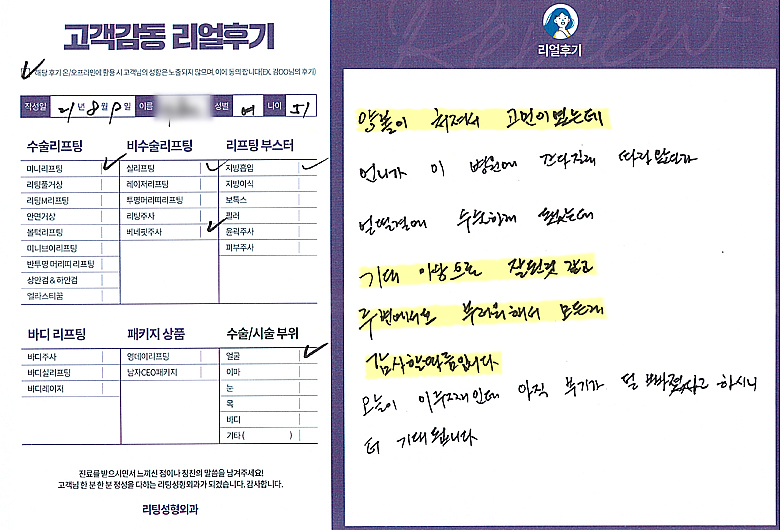 고객감동 리얼후기
해당 후기 온/오프라인에 활용 시 고객님의 성함은 노출되지 않으며, 이에 동의 합니다(EX. 김OO님의 후기)
작성일 21년 8월 9일 이름 성별 여 나이 51
수술리프팅
미니리프팅
리팅풀거상
리팅M리프팅
안면거상
볼턱리프팅
미니브이리프팅
반투명 머리띠 리프팅
상안검 & 하안검
엘라스티꿈
비수술리프팅
실리프팅
레이저리프팅
투명머리띠리프팅
리팅주사
버네핏주사
리프팅 부스터
지방흡입
지방이식
보톡스
필러
윤곽주사
피부주사
바디 리프팅
바디주사
바디실리프팅
바디레이저
패키지 상품
원데이리프팅
남자CEO패키지
수술/시술 부위
얼굴
이마
눈
목
바디
기타 ( )
진료를 받으시면서 느끼신 점이나 칭찬의 말씀을 남겨주세요!
고객님 한 분 한 분 정성을 다하는 리팅성형외과가 되겠습니다. 감사합니다.
리팅성형외과
Review
리얼후기
양볼이 쳐져서 고민이였는데
언니가 이 병원에 간다길래 따라왔다가
얼떨결에 수술하게 됐는데
기대 이상으로 잘된것 같고
주변에서도 부러워해서 모든게
감사할따름입니다.
오늘이 이주째인데 아직 부기가 덜 빠졌다고 하시니
더 기대됩니다